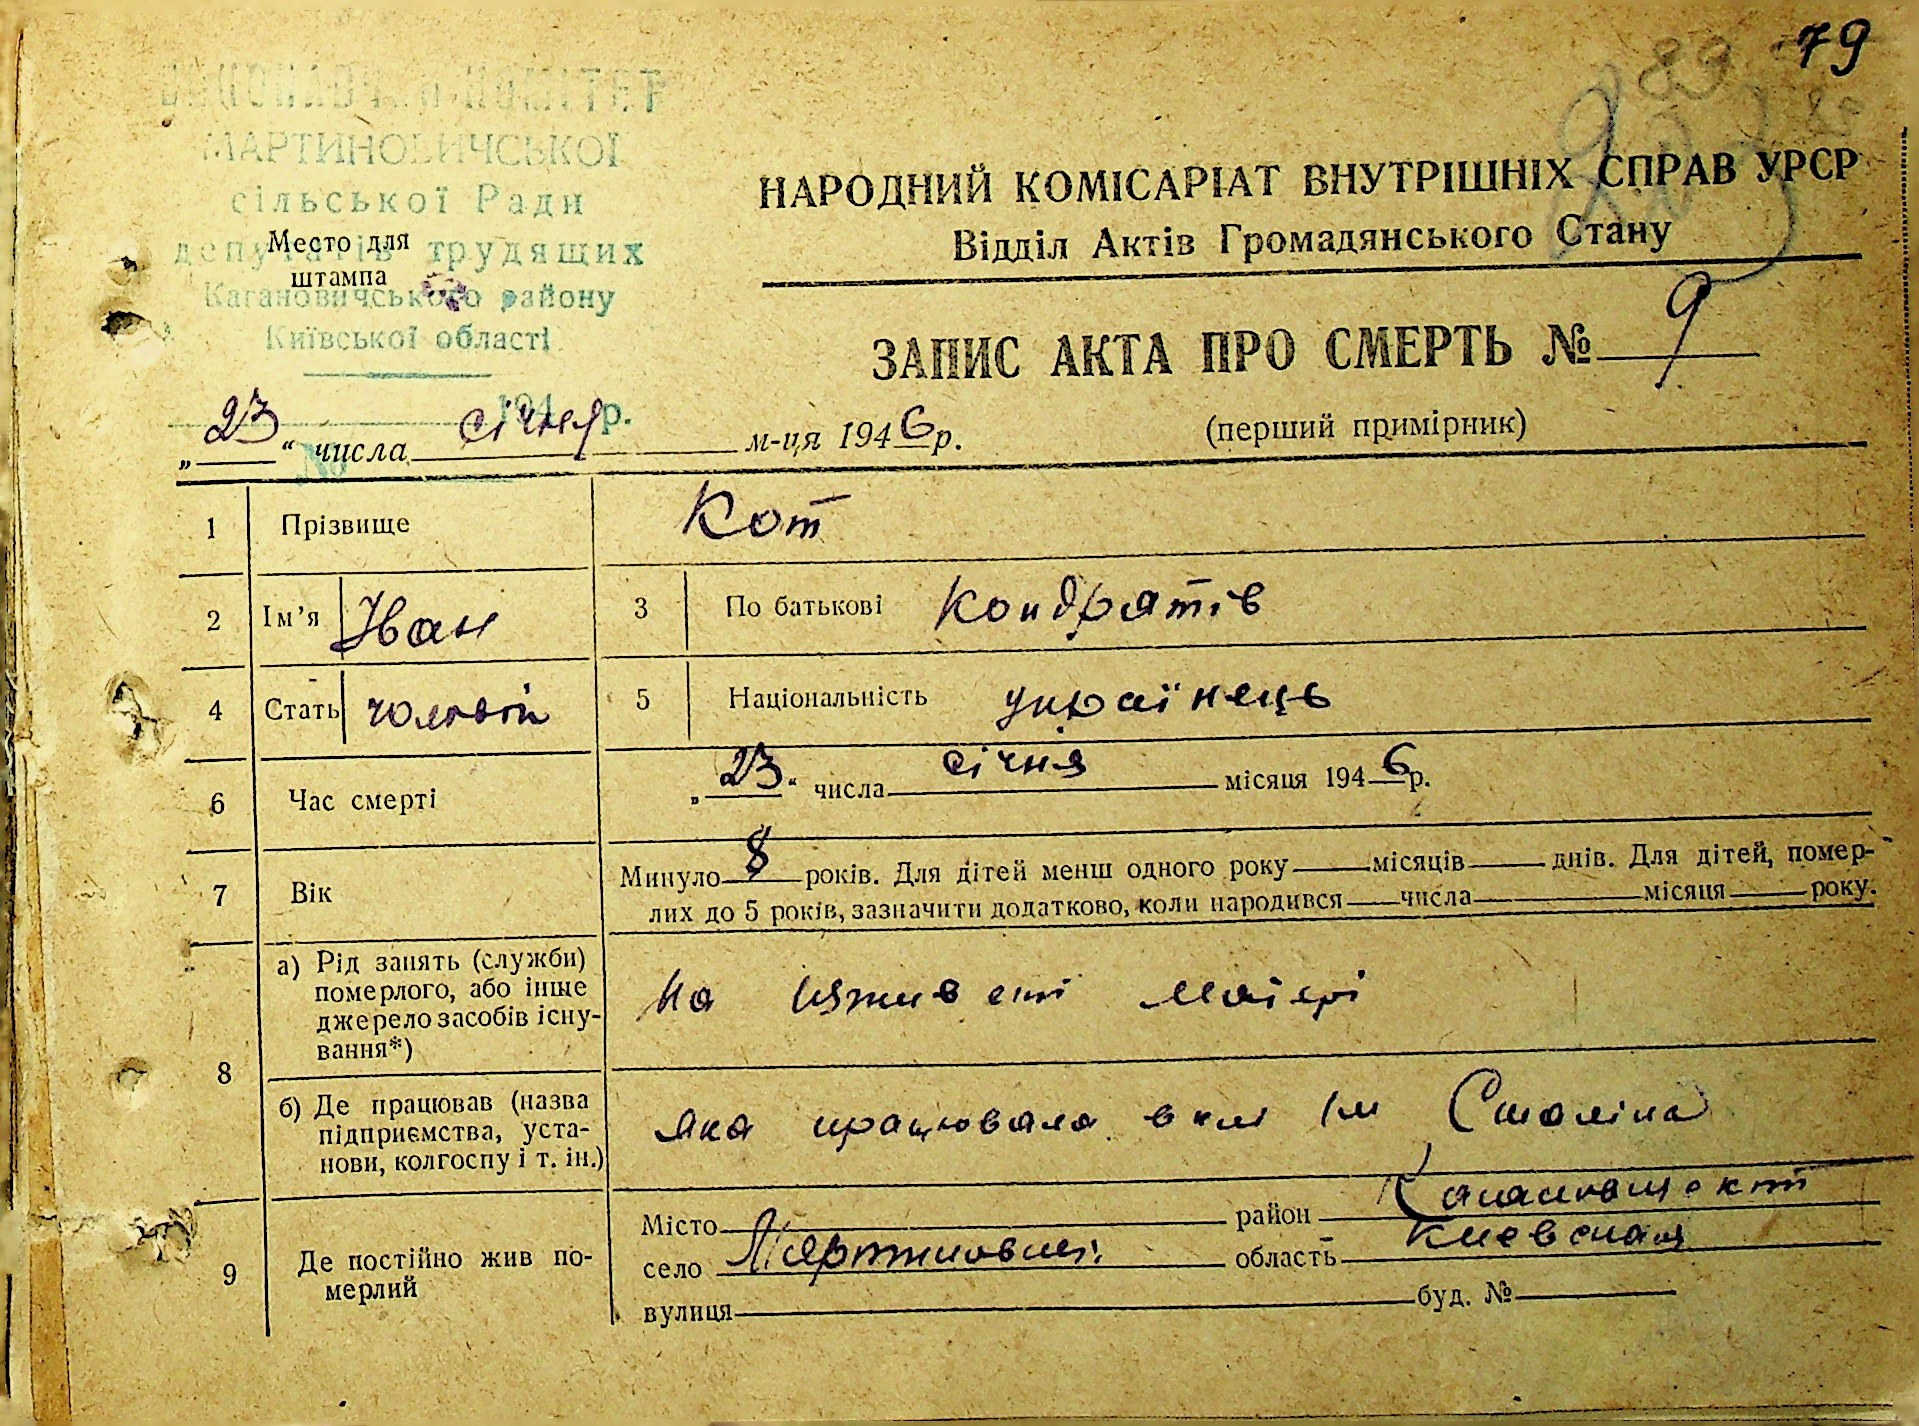 79
89
ВИКОНАВЧИЙ КОМІТЕТ
МАРТИНОВИЧСЬКОЇ
сільської Ради
депутатів трудящих
Кагановичського району
Київської області
194 р.
№
Место для
штампа
НАРОДНИЙ КОМІСАРІАТ ВНУТРІШНІХ СПРАВ УРСР
Відділ Актів Громадянського Стану
ЗАПИС АКТА ПРО СМЕРТЬ № 9
„23“ числа січня м-ця 1946 р.
(перший примірник)
1 Прізвище Кот
2 Ім’я Іван 3 По батькові Кондратів
4 Стать чоловік 5 Національність українець
6 Час смерті „23“ числа січня місяця 1946 р.
7 Вік Минуло 8 років. Для дітей менш одного року місяців днів. Для дітей, помер-
лих до 5 років, зазначити додатково, коли народився числа місяця року.
8 а) Рід занять (служби)
померлого, або інше
джерело засобів існу-
вання*)
На матері
б) Де працював (назва
підприємства, уста-
нови, колгоспу і т. ін.)
яка працювала в Ім Сталіна
9 Де постійно жив по-
мерлий
Місто район
село Мартиновичі область Киевская
вулиця буд. №